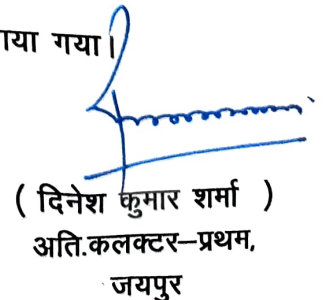 या गया।
( दिनेश कुमार शर्मा )
अति.कलक्टर–प्रथम,
जयपुर